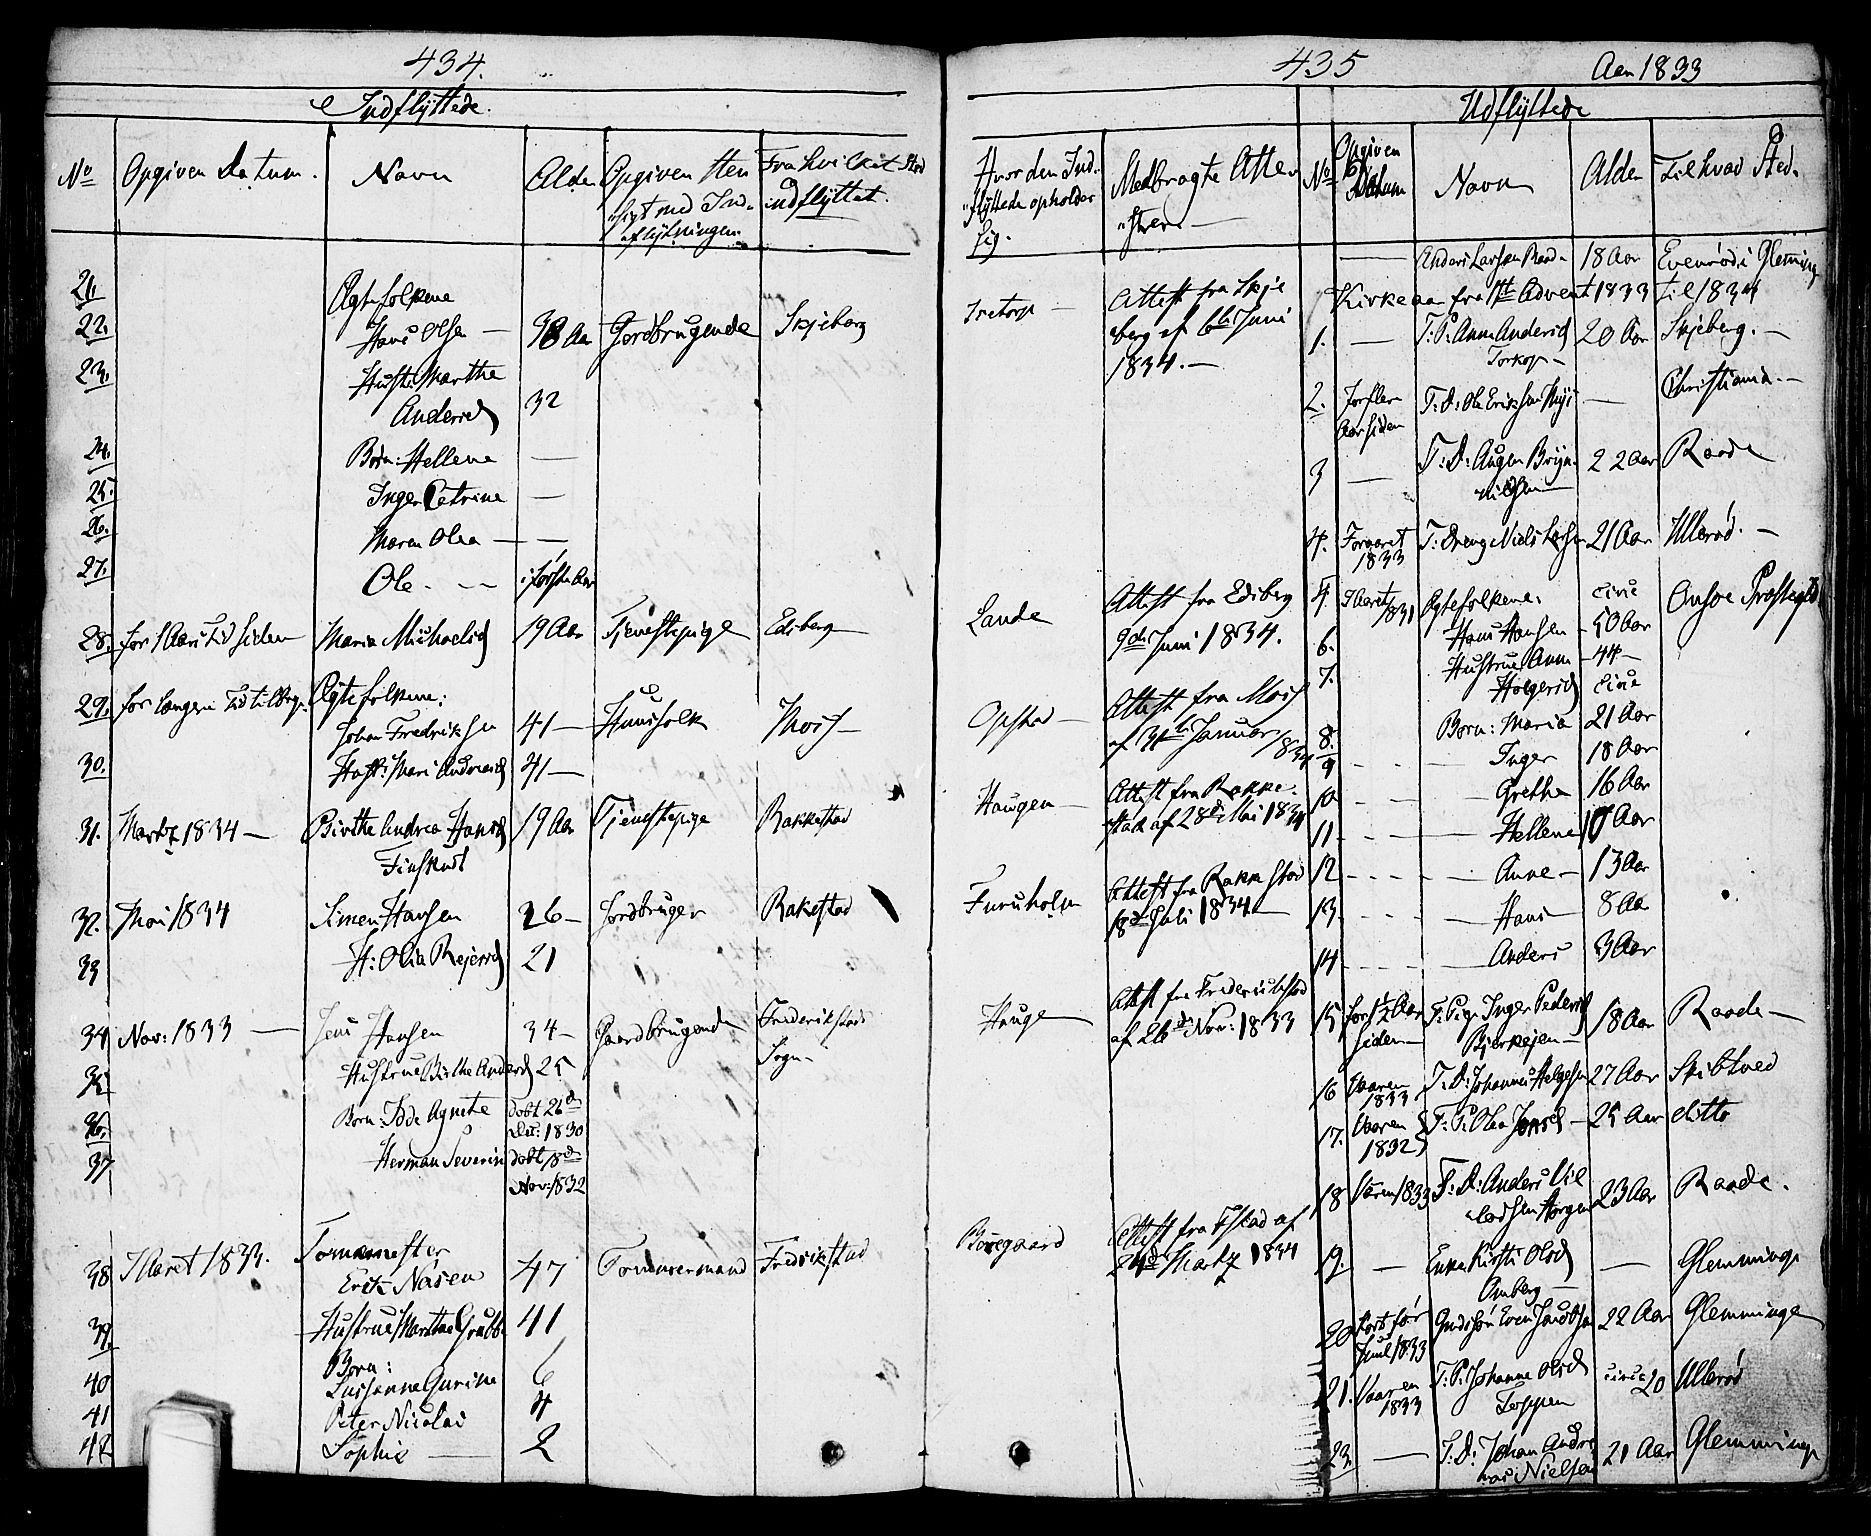 434.
Indflyttede.
No Opgiven Datum. Navn Alder Opgiven Hen- Fra hvilket Sted
sigt med Ind- indflyttet.
flytningen.
21. Ægtefolkene
22. Hans Olsen — 38 Aar Jordbrugende Skjeberg
23. Hustr: Marthe
Andersd 32
24. Børn: Hellene —
25. Inger Petrine —
26. Maren Olea — —
27. Ole. — i første Aar
28. for 1 Aars Tid siden Maria Michaelsd 19 Aar Tjenestepige Edsberg
29. for længere Tid tilbage Ægtefolkene:
Johan Fredriksen 41 — Huusfolk Moss —
30. Hustr: Mari Andreasd 41 —
31. Martz 1834 — Birthe Andrea Hansd 19 Aar Tjenestepige Rakkestad
Finstad
32. Mai 1834 Simen Hansen 26 — Jordbruger Rakestad
33 H: Olia Rejersd 21
34 Nov: 1833 — Jens Hansen 34 — Gaardbrugende Frederikstads
Sogn —
35. Hustrue Birthe Andersd 25
36. Børn: Ide Agnete døbt 26de
Dec: 1830
37 Herman Severin døbt 18de
Nov: 1832
38 Maret 1833. Tornemester
Erik Nasen 47 Fredrikstad
39. Hustrue Marthe Grubb 41
Børn:
40 Susanne Gurine 6
41 Peter Nicolai 4
42 Sophie — 2
435 Aar 1833
Udflyttede
Hvor den Ind- Medbragte Atte- No Opgiven Datum Navn Alder Til hvad Sted.
flyttede opholder ster —
sig.
— Anders Larsen Raad 18 Aar Evenrød i Glemminge
Kirkeaar fra 1ste Advent 1833 til 1834
Tretorp — Attest fra Skje
berg af 6te Juni
1834. —
1. — T: P: Anne Andersd 20 Aar Skjeberg. —
Torkop —
2. for flere T: D: Ole Eriksen — Christiania. —
Aar siden
3 — T: D: Augen Bryn- 22 Aar Raade
nildsen
4. Foraaret T: Dreng Niels 21 Aar Ullerød. —
1833
Lande Attest fra Edsberg
9de Juni 1834.
5. Maret Ægtefolkene: circa Onsøe Præstegjeld
1831
6. Hans Hansen — 50 Aar
7. Hustrue Anne — 44 —
Holgersd circa
Opstad — Attest fra Moss
af 31te Januar 1834
8. Børn: Maria 21 Aar
9 — Inger 18 Aar
Haugen — Attest fra Rakke-
stad af 28de Mai 1834
10 — Grethe 16 Aar
11 — Hellene 10 Aar
Furuholm Attest fra Rakkestad
18de Juli 1834 —
12 — Anne — 13 Aar
13. — Hans — 8 Aar
14 — Anders 3 Aar
Hauge Attest fra Frederikstad
af 26de Nov: 1833
15 for 1½ Aar T: Pige Inger Pedersd 18 Aar Raade —
siden — Bjerkejen —
16 Vaaren T: D: Johannes Helgesen 27 Aar Skibtved
1833
17. Vaaren T: P: Olea Jonsd — 25 Aar ditto
1832
18 Vaaren 1833 T: D: Anders 23 Aar Raade.
Borregaard Attest fra Fstad af
24de Martz 1834
19. — Enke Kirsti Olsd — Glemminge
Omberg —
20 kort før Even 22 Aar Glemminge
Juul 1833
21. Vaaren T: P: Johanne Olsd circa 20 Ullerød
1833 Toppen
23. — T: D: Johan Andre- 21 Aar Glemminge
as Nielsen